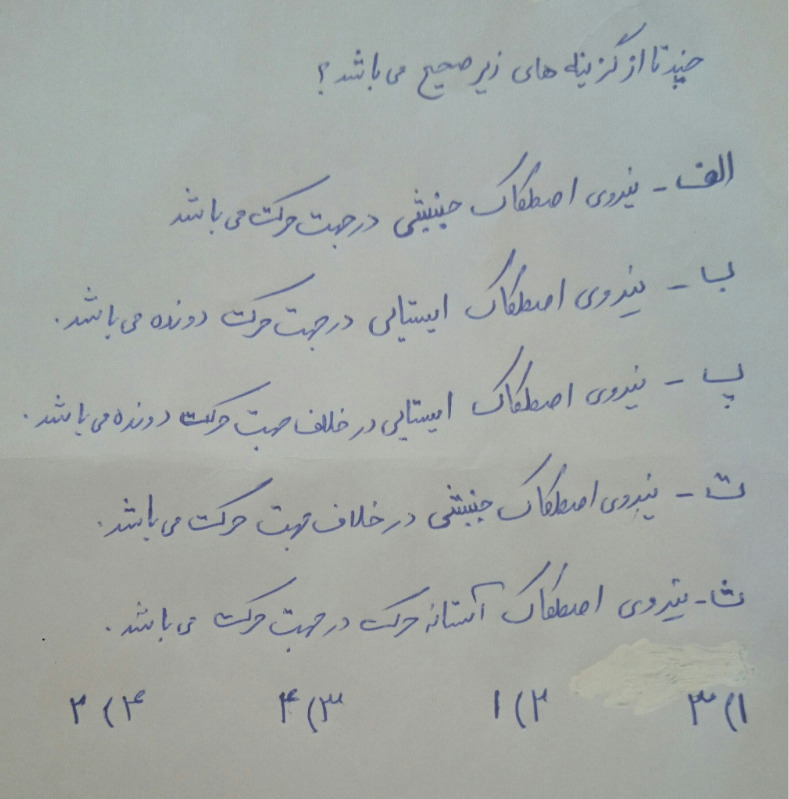 چند تا از گزینه های زیر صحیح می باشد ؟
الف - نیروی اصطکاک جنبشی در جهت حرکت می باشد
ب - نیروی اصطکاک ایستایی در جهت حرکت دونده می باشد .
پ - نیروی اصطکاک ایستایی در خلاف جهت حرکت دونده می باشد .
ت - نیروی اصطکاک جنبشی در خلاف جهت حرکت می باشد .
ث - نیروی اصطکاک آستانه حرکت در جهت حرکت می باشد .
۱) ۳ ۲) ۱ ۳) ۴ ۴) ۲